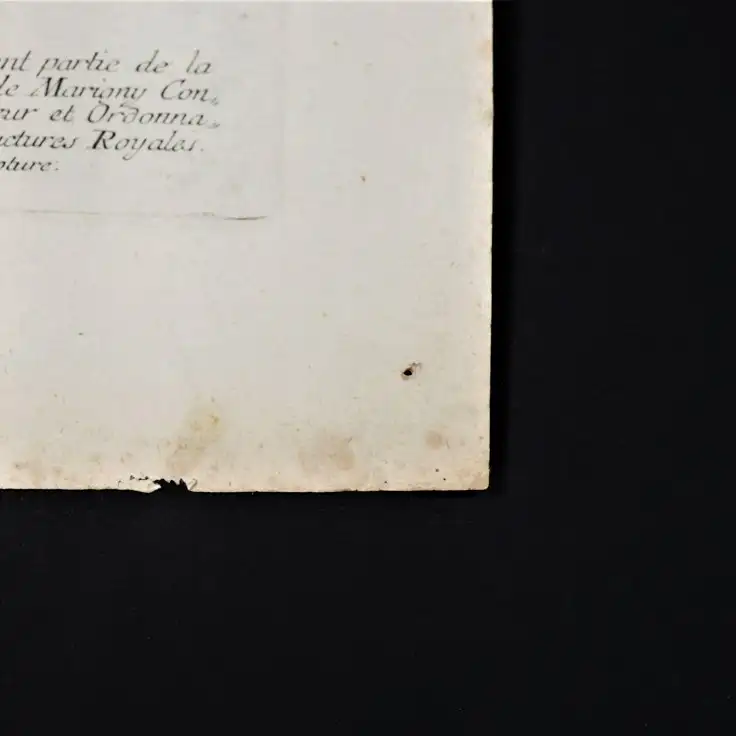 nt partie de la
de Marigny Con,,
eur et Ordonna,,
actures Royales.
pture.